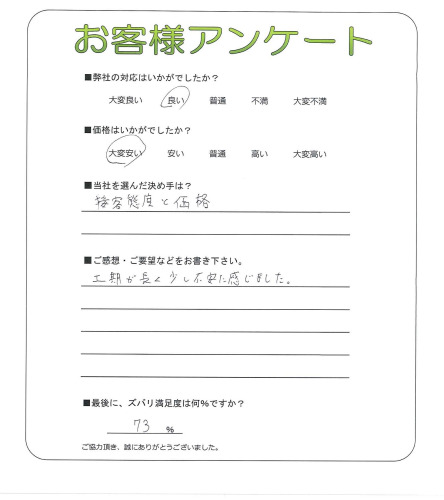 お客様アンケート
■弊社の対応はいかがでしたか?
大変良い 良い 普通 不満 大変不満
■価格はいかがでしたか?
大変安い 安い 普通 高い 大変高い
■当社を選んだ決め手は?
接客態度と価格
■ご感想・ご要望などをお書き下さい。
工期が長く少し不安に感じました。
■最後に、ズバリ満足度は何%ですか?
73 %
ご協力頂き、誠にありがとうございました。